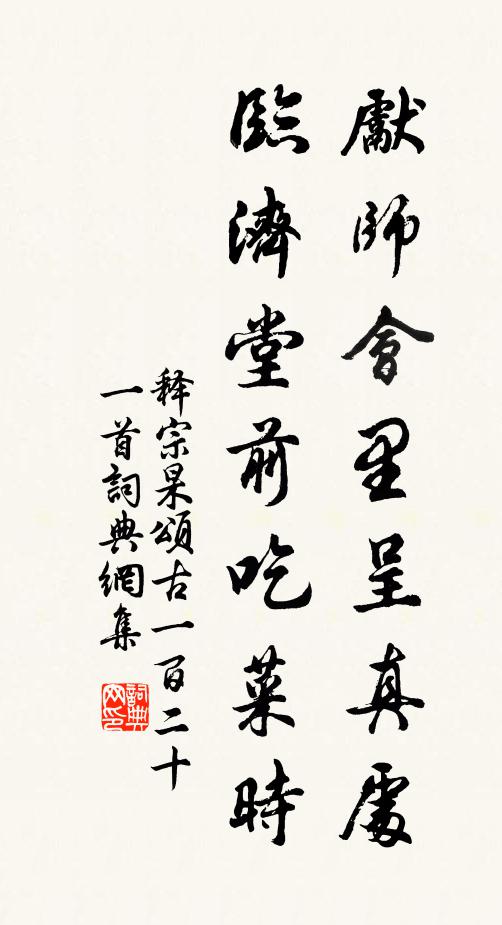 獻師會里呈真處
臨濟堂前吃菜時
释宗杲頌古一百二十
一首詞典網集
詞典
网印